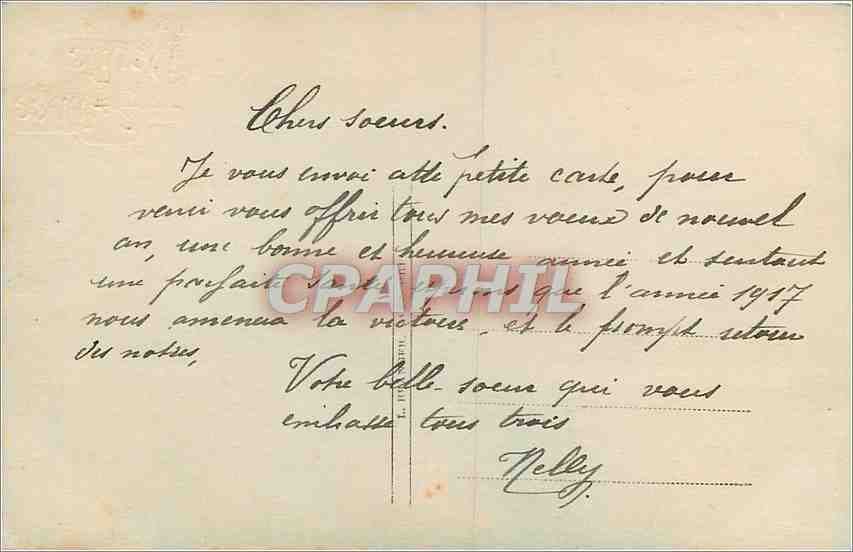 Chers soeurs.
Je vous envoi cette petite carte, pour
venir vous offrir tous mes voeux de nouvel
an, une bonne et heureuse année et surtout
une parfaite santé, espérons que l'année 1917
nous amenera la victoire, et le prompt retour
des notres,
Votre belle-soeur qui vous
embrasse tous trois
Nelly.
CPAPHIL